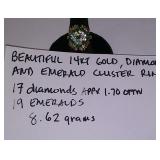 BEAUTIFUL 14KT GOLD, DIAMOND
AND EMERALD CLUSTER RIN
17 diamonds APPX 1.70 CTTW
19 EMERALDS
8.62 grams